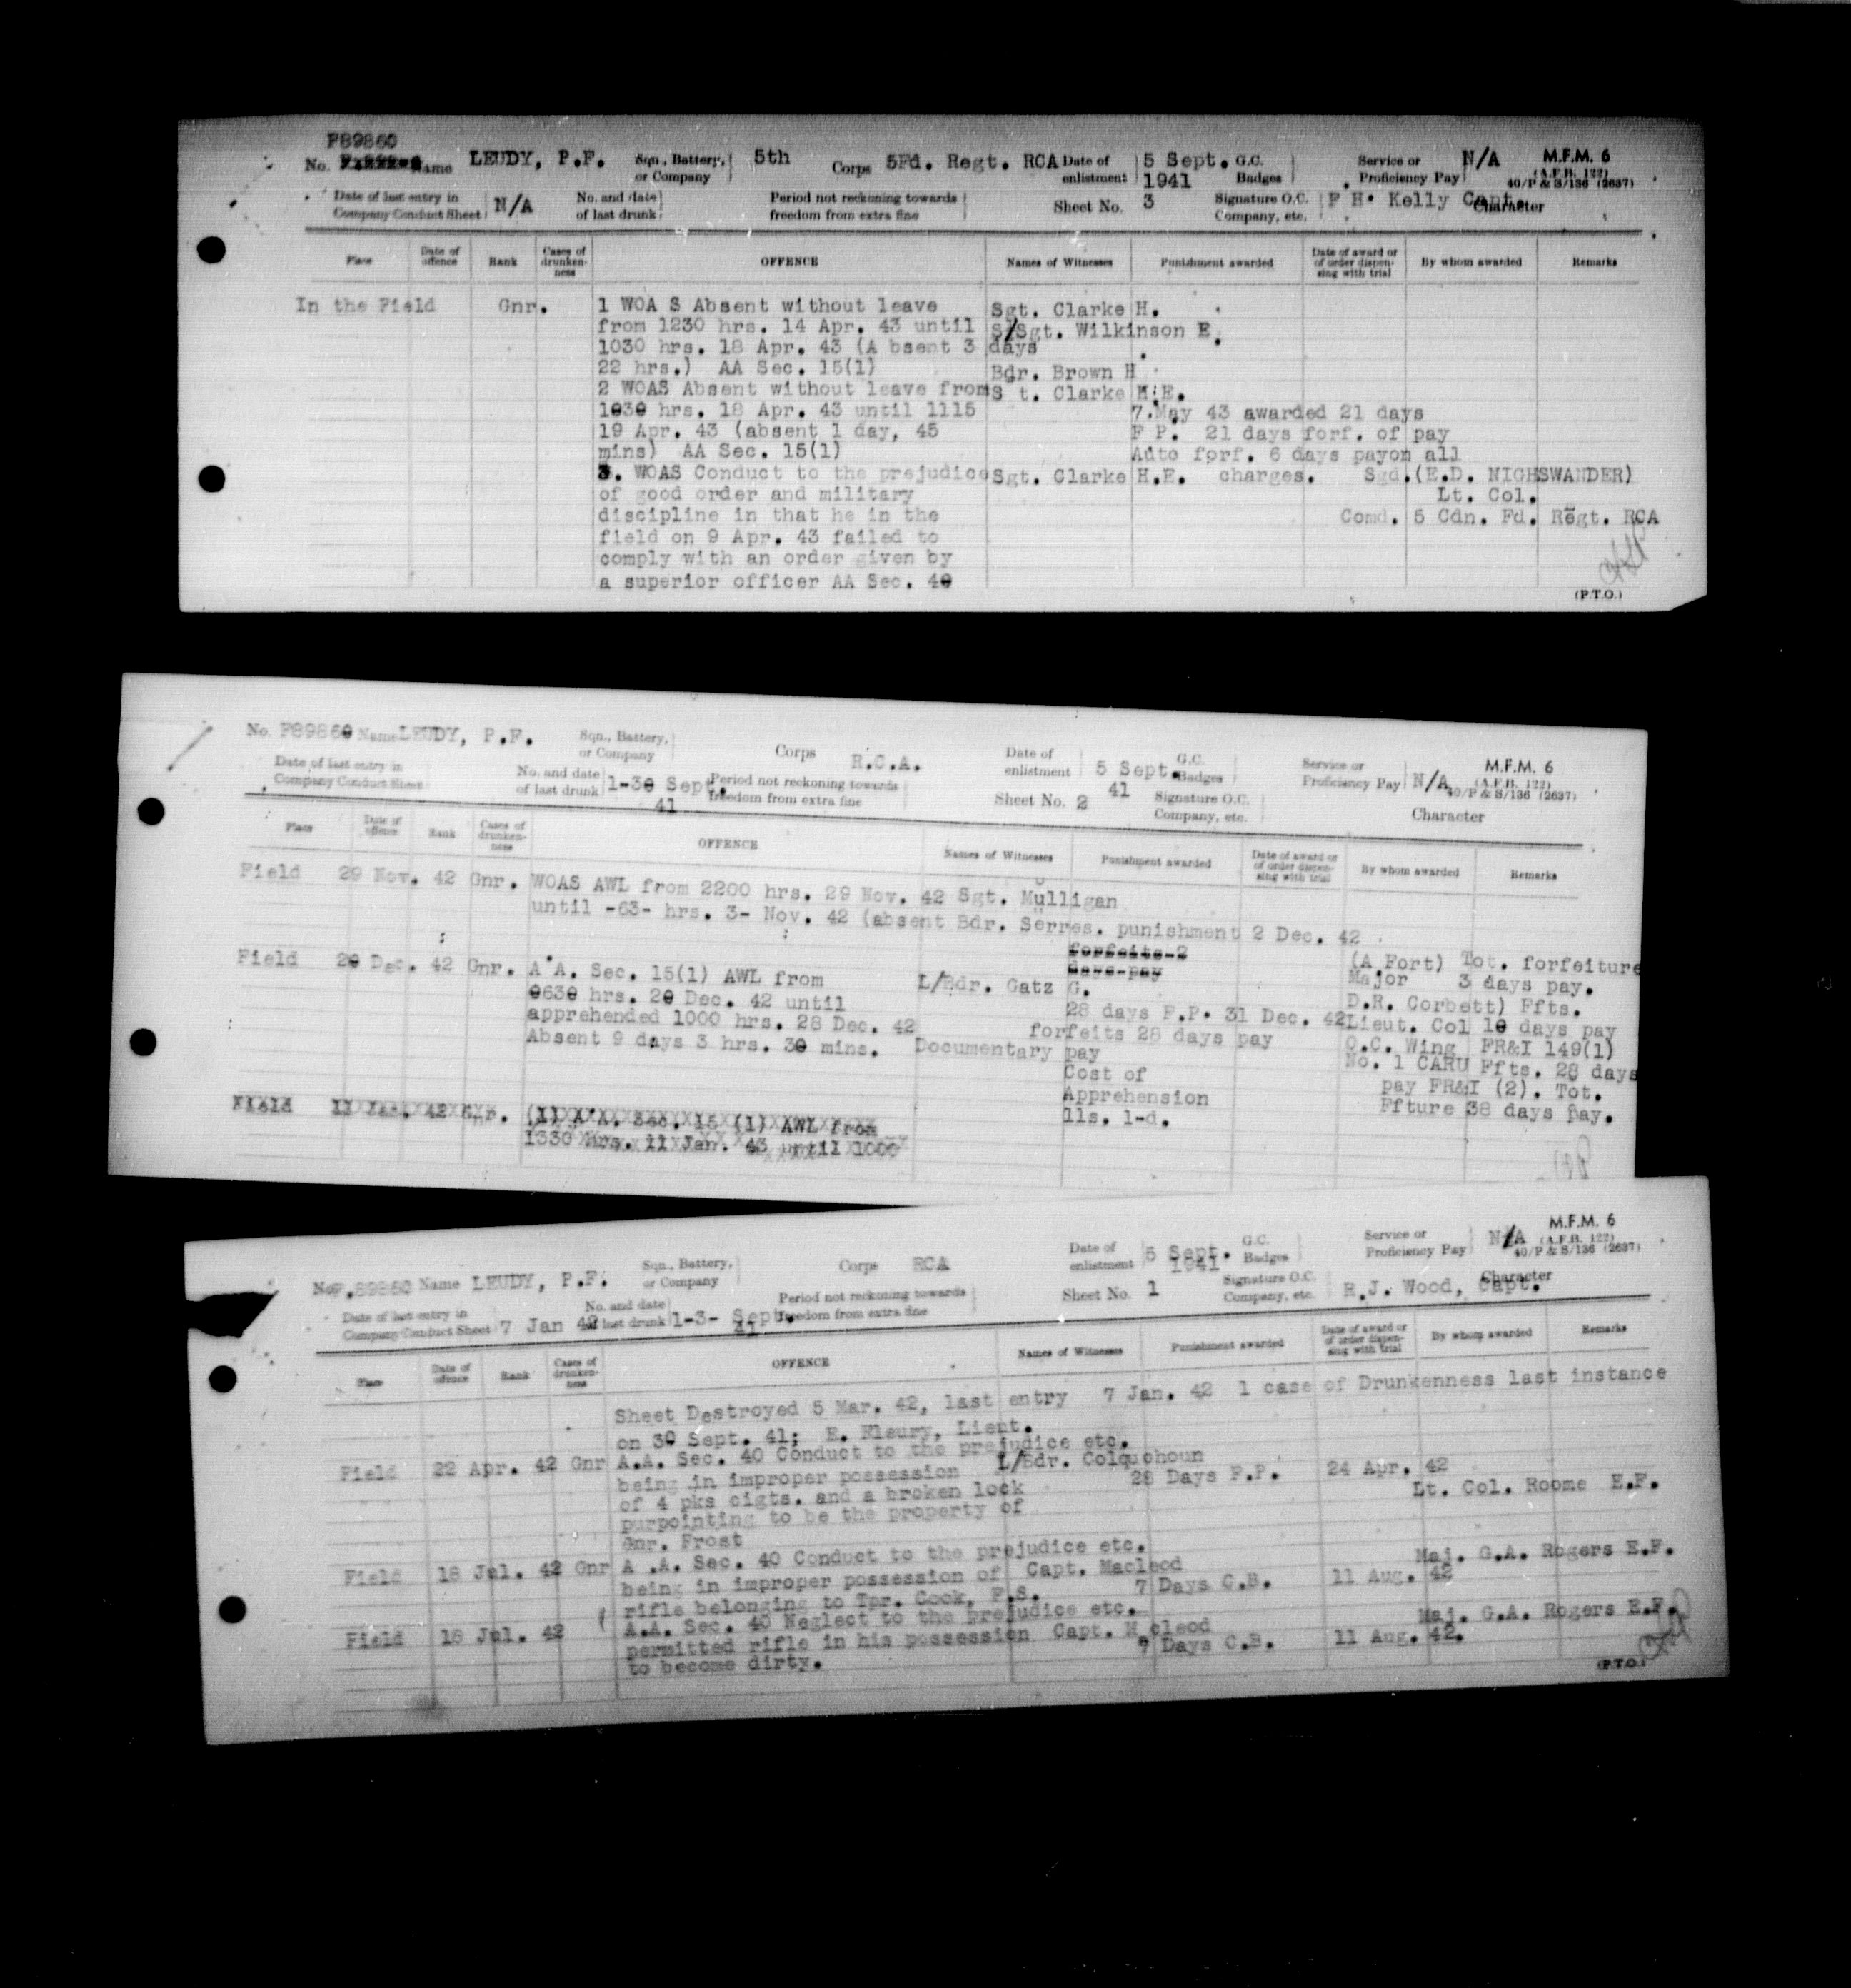 F89860
No. Name LEUDY, P.F. Sqn., Battery, or Company 5th Corps 5Fd. Regt. RCA Date of enlistment 5 Sept. 1941 G.C. Badges Service or Proficiency Pay N/A M.F.M. 6
(A.F.B. 122)
40/P & S/136 (2637)
Date of last entry in Company Conduct Sheet N/A No. and date of last drunk Period not reckoning towards freedom from extra fine Sheet No. 3 Signature O.C. Company, etc. F H. Kelly Capt. Character
Place Date of offence Rank Cases of drunken-ness OFFENCE Names of Witnesses Punishment awarded Date of award or of order dispen-sing with trial By whom awarded Remarks
In the Field Gnr. 1 WOA S Absent without leave Sgt. Clarke H.
from 1230 hrs. 14 Apr. 43 until S/Sgt. Wilkinson E.
1030 hrs. 18 Apr. 43 (A bsent 3 days
22 hrs.) AA Sec. 15(1) Bdr. Brown H
2 WOAS Absent without leave from S t. Clarke H.E.
1030 hrs. 18 Apr. 43 until 1115 7.May 43 awarded 21 days
19 Apr. 43 (absent 1 day, 45 F P. 21 days forf. of pay
mins) AA Sec. 15(1) Auto forf. 6 days payon all
3. WOAS Conduct to the prejudice Sgt. Clarke H.E. charges. Sgd.(E.D. NIGHSWANDER)
of good order and military Lt. Col.
discipline in that he in the Comd. 5 Cdn. Fd. Regt. RCA
field on 9 Apr. 43 failed to
comply with an order given by
a superior officer AA Sec. 40
(P.T.O.)
No. F89860 Name LEUDY, P.F. Sqn., Battery, or Company Corps R.C.A. Date of enlistment 5 Sept. 41 G.C. Badges Service or Proficiency Pay N/A M.F.M. 6
(A.F.B. 122)
40/P & S/136 (2637)
Date of last entry in Company Conduct Sheet No. and date of last drunk 1-30 Sept. 41 Period not reckoning towards freedom from extra fine Sheet No. 2 Signature O.C. Company, etc. Character
Place Date of offence Rank Cases of drunken-ness OFFENCE Names of Witnesses Punishment awarded Date of award or of order dispen-sing with trial By whom awarded Remarks
Field 29 Nov. 42 Gnr. WOAS AWL from 2200 hrs. 29 Nov. 42 Sgt. Mulligan
until -63- hrs. 3- Nov. 42 (absent Bdr. Serres. punishment 2 Dec. 42
forfeits 2
days pay
(A Fort) Tot. forfeiture
Major 3 days pay.
Field 20 Dec. 42 Gnr. A A. Sec. 15(1) AWL from L/Bdr. Gatz G. D.R. Corbett) Ffts.
0630 hrs. 20 Dec. 42 until 28 days F.P. 31 Dec. 42 Lieut. Col 10 days pay
apprehended 1000 hrs. 28 Dec. 42 forfeits 28 days pay O.C. Wing FR&I 149(1)
Absent 9 days 3 hrs. 30 mins. Documentary pay No. 1 CARU Ffts. 28 days
Cost of pay FR&I (2). Tot.
Apprehension Ffture 38 days pay.
11s. 1-d.
Field 11 Jan. 42 Gnr. (1) A A. Sec. 15 (1) AWL from
1330 hrs. 11 Jan. 43 until 1000
No F.89860 Name LEUDY, P.F. Sqn., Battery, or Company Corps RCA Date of enlistment 5 Sept. 1941 G.C. Badges Service or Proficiency Pay N/A M.F.M. 6
(A.F.B. 122)
40/P & S/136 (2637)
Date of last entry in Company Conduct Sheet 7 Jan 42 No. and date of last drunk 1-3- Sept. 41 Period not reckoning towards freedom from extra fine Sheet No. 1 Signature O.C. Company, etc. R.J. Wood, Capt. Character
Place Date of offence Rank Cases of drunken-ness OFFENCE Names of Witnesses Punishment awarded Date of award or of order dispen-sing with trial By whom awarded Remarks
Sheet Destroyed 5 Mar. 42, last entry 7 Jan. 42 1 case of Drunkenness last instance
on 30 Sept. 41; E. Fleury, Lieut.
Field 22 Apr. 42 Gnr A.A. Sec. 40 Conduct to the prejudice etc.
being in improper possession L/Bdr. Colquohoun 28 Days F.P. 24 Apr. 42
of 4 pks cigts. and a broken lock Lt. Col. Roome E.F.
purpointing to be the property of
Gnr. Frost
Field 18 Jul. 42 Gnr A .A. Sec. 40 Conduct to the prejudice etc.
being in improper possession of Capt. Macleod Maj. G.A. Rogers E.F.
rifle belonging to Tpr. Cook, F.S. 7 Days C.B. 11 Aug. 42
Field 18 Jul. 42 A.A. Sec. 40 Neglect to the prejudice etc.
permitted rifle in his possession Capt. M cleod Maj. G.A. Rogers E.F.
to become dirty. 7 Days C.B. 11 Aug. 42.
(P.T.O.)